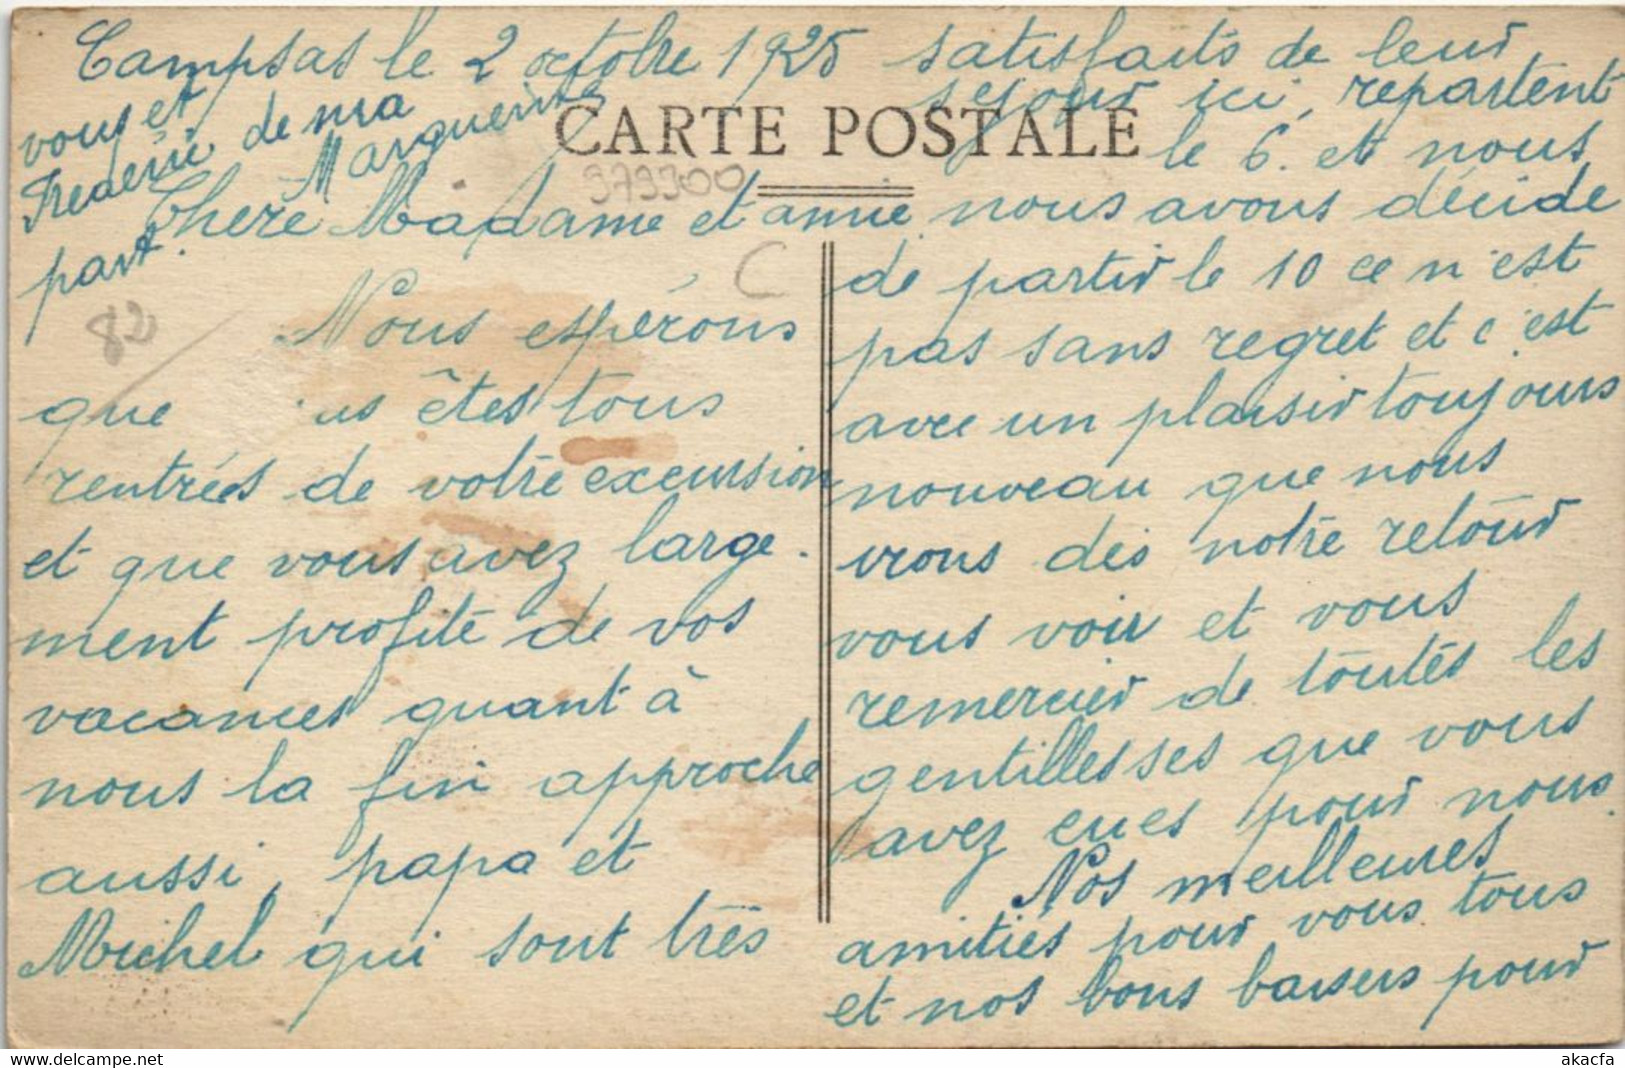 Campsas le 2 octobre 1925
CARTE POSTALE
979300
C
82
Chère Madame et amie
Nous espérons
que us êtes tous
rentrées de votre excursion
et que vous avez large-
ment profité de vos
vacances quant à
nous la fin approche
aussi, papa et
Michel qui sont très
satisfaits de leur
séjour ici, repartent
le 6. et nous
nous avons décidé
de partir le 10 ce n'est
pas sans regret et c'est
avec un plaisir toujours
nouveau que nous
irons dès notre retour
vous voir et vous
remercier de toutes les
gentillesses que vous
avez eues pour nous.
Nos meilleures
amitiés pour vous tous
et nos bons baisers pour
vous et
de ma
part.
Marguerite
delcampe.net
akacfa